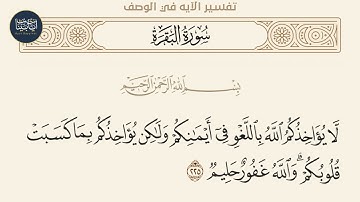 تفسير الآيه في الوصف
سُورَةُ البَقَرَةِ
بِسْمِ اللَّهِ الرَّحْمَٰنِ الرَّحِيمِ
لَّا يُؤَاخِذُكُمُ اللَّهُ بِاللَّغْوِ فِي أَيْمَانِكُمْ وَلَٰكِن يُؤَاخِذُكُم بِمَا كَسَبَتْ
قُلُوبُكُمْ ۗ وَاللَّهُ غَفُورٌ حَلِيمٌ ٢٢٥